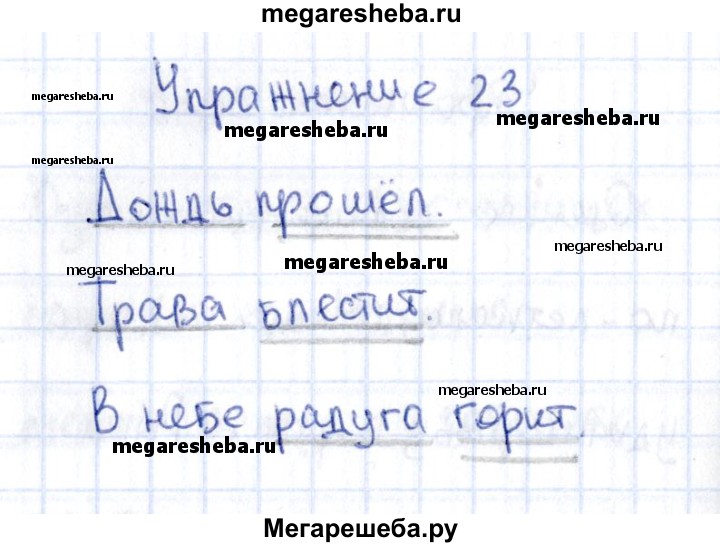 megaresheba.ru
megaresheba.ru
Упражнение 23
megaresheba.ru
megaresheba.ru
megaresheba.ru
Дождь прошёл.
megaresheba.ru
megaresheba.ru
megaresheba.ru
Трава блестит.
megaresheba.ru
В небе радуга горит.
megaresheba.ru
Мегарешеба.ру